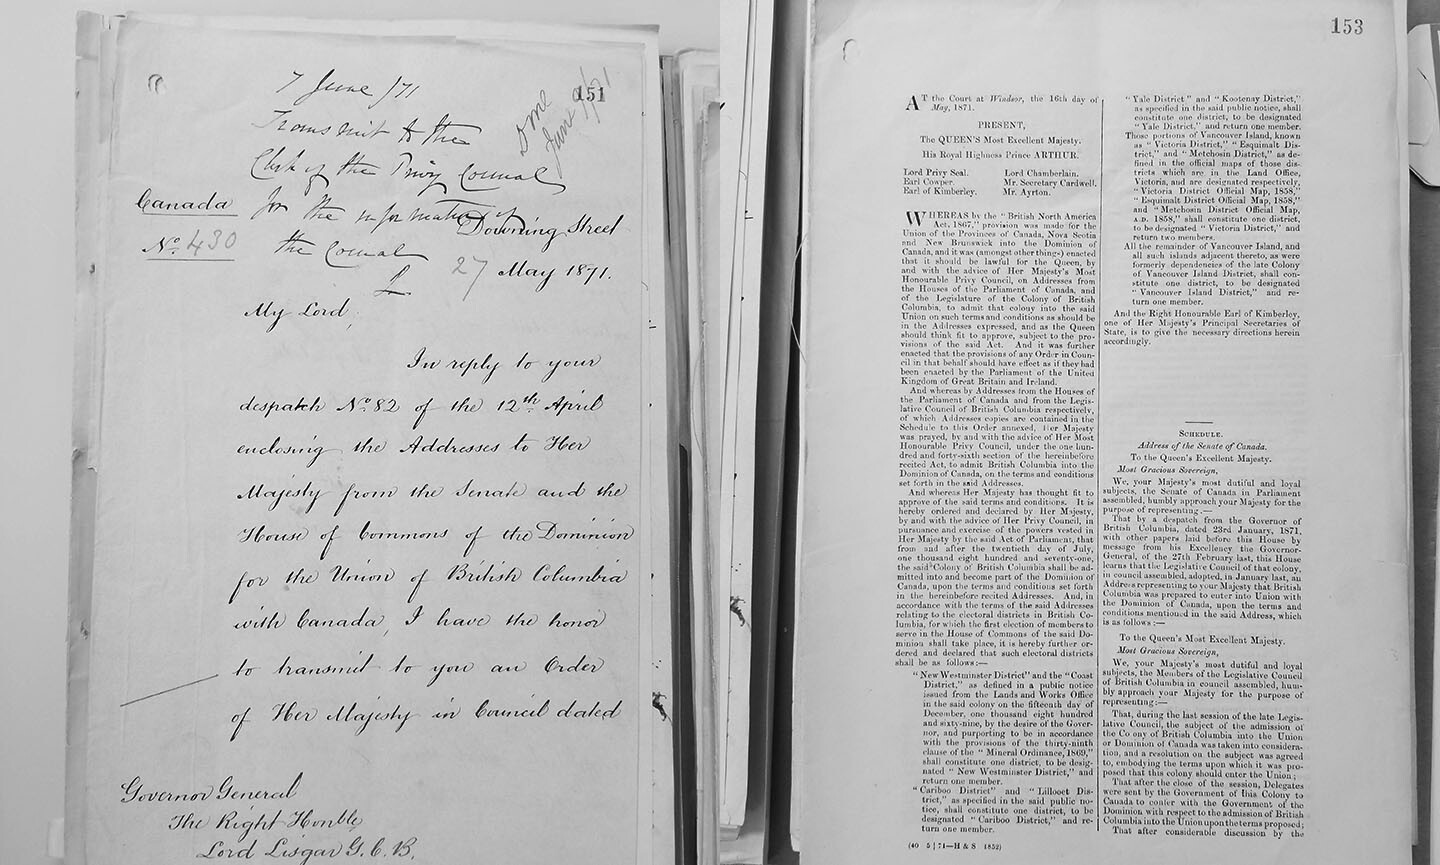 7 June /71
Transmit to the
Clerk of the Privy Council
for the information of
the Council
L
Done
June 9/71
151
Canada
No. 430
Downing Street
27 May 1871.
My Lord,
In reply to your
despatch No. 82 of the 12th April
enclosing the Addresses to Her
Majesty from the Senate and the
House of Commons of the Dominion
for the Union of British Columbia
with Canada, I have the honor
to transmit to you an Order
of Her Majesty in Council dated
Governor General
The Right Honble
Lord Lisgar G.C.B.
153
AT the Court at Windsor, the 16th day of
May, 1871.
PRESENT,
The QUEEN'S Most Excellent Majesty.
His Royal Highness Prince ARTHUR.
Lord Privy Seal. Lord Chamberlain.
Earl Cowper. Mr. Secretary Cardwell.
Earl of Kimberley. Mr. Ayrton.
WHEREAS by the "British North America
Act, 1867," provision was made for the
Union of the Provinces of Canada, Nova Scotia
and New Brunswick into the Dominion of
Canada, and it was (amongst other things) enacted
that it should be lawful for the Queen, by
and with the advice of Her Majesty's Most
Honourable Privy Council, on Addresses from
the Houses of the Parliament of Canada, and
of the Legislature of the Colony of British
Columbia, to admit that colony into the said
Union on such terms and conditions as should be
in the Addresses expressed, and as the Queen
should think fit to approve, subject to the pro-
visions of the said Act. And it was further
enacted that the provisions of any Order in Coun-
cil in that behalf should have effect as if they had
been enacted by the Parliament of the United
Kingdom of Great Britain and Ireland.
And whereas by Addresses from the Houses of
the Parliament of Canada and from the Legis-
lative Council of British Columbia respectively,
of which Addresses copies are contained in the
Schedule to this Order annexed, Her Majesty
was prayed, by and with the advice of Her Most
Honourable Privy Council, under the one hun-
dred and forty-sixth section of the hereinbefore
recited Act, to admit British Columbia into the
Dominion of Canada, on the terms and conditions
set forth in the said Addresses.
And whereas Her Majesty has thought fit to
approve of the said terms and conditions. It is
hereby ordered and declared by Her Majesty,
by and with the advice of Her Privy Council, in
pursuance and exercise of the powers vested in
Her Majesty by the said Act of Parliament, that
from and after the twentieth day of July,
one thousand eight hundred and seventy-one,
the said Colony of British Columbia shall be ad-
mitted into and become part of the Dominion of
Canada, upon the terms and conditions set forth
in the hereinbefore recited Addresses. And, in
accordance with the terms of the said Addresses
relating to the electoral districts in British Co-
lumbia, for which the first election of members to
serve in the House of Commons of the said Do-
minion shall take place, it is hereby further or-
dered and declared that such electoral districts
shall be as follows:—
"New Westminster District" and the "Coast
District," as defined in a public notice
issued from the Lands and Works Office
in the said colony on the fifteenth day of
December, one thousand eight hundred
and sixty-nine, by the desire of the Gover-
nor, and purporting to be in accordance
with the provisions of the thirty-ninth
clause of the "Mineral Ordinance, 1869,"
shall constitute one district, to be desig-
nated "New Westminster District," and
return one member.
"Cariboo District" and "Lillooet Dis-
trict," as specified in the said public no-
tice, shall constitute one district, to be
designated "Cariboo District," and re-
turn one member.
(40 5 | 71—H & S 1852)
"Yale District" and "Kootenay District,"
as specified in the said public notice, shall
constitute one district, to be designated
"Yale District," and return one member.
Those portions of Vancouver Island, known
as "Victoria District," "Esquimalt Dis-
trict," and "Metchosin District," as de-
fined in the official maps of those dis-
tricts which are in the Land Office,
Victoria, and are designated respectively,
"Victoria District Official Map, 1858,"
"Esquimalt District Official Map, 1858,"
and "Metchosin District Official Map,
A.D. 1858," shall constitute one district,
to be designated "Victoria District," and
return two members.
All the remainder of Vancouver Island, and
all such islands adjacent thereto, as were
formerly dependencies of the late Colony
of Vancouver Island District, shall con-
stitute one district, to be designated
"Vancouver Island District," and re-
turn one member.
And the Right Honourable Earl of Kimberley,
one of Her Majesty's Principal Secretaries of
State, is to give the necessary directions herein
accordingly.
SCHEDULE.
Address of the Senate of Canada.
To the Queen's Most Excellent Majesty.
Most Gracious Sovereign,
We, your Majesty's most dutiful and loyal
subjects, the Senate of Canada in Parliament
assembled, humbly approach your Majesty for the
purpose of representing:—
That by a despatch from the Governor of
British Columbia, dated 23rd January, 1871,
with other papers laid before this House by
message from his Excellency the Governor-
General, of the 27th February last, this House
learns that the Legislative Council of that colony,
in council assembled, adopted, in January last, an
Address representing to your Majesty that British
Columbia was prepared to enter into Union with
the Dominion of Canada, upon the terms and
conditions mentioned in the said Address, which
is as follows:—
To the Queen's Most Excellent Majesty.
Most Gracious Sovereign,
We, your Majesty's most dutiful and loyal
subjects, the Members of the Legislative Council
of British Columbia in council assembled, hum-
bly approach your Majesty for the purpose of
representing:—
That, during the last session of the late Legis-
lative Council, the subject of the admission of
the Colony of British Columbia into the Union
or Dominion of Canada was taken into considera-
tion, and a resolution on the subject was agreed
to, embodying the terms upon which it was pro-
posed that this colony should enter the Union;
That after the close of the session, Delegates
were sent by the Government of this Colony to
Canada to confer with the Government of the
Dominion with respect to the admission of British
Columbia into the Union upon the terms proposed;
That after considerable discussion by the